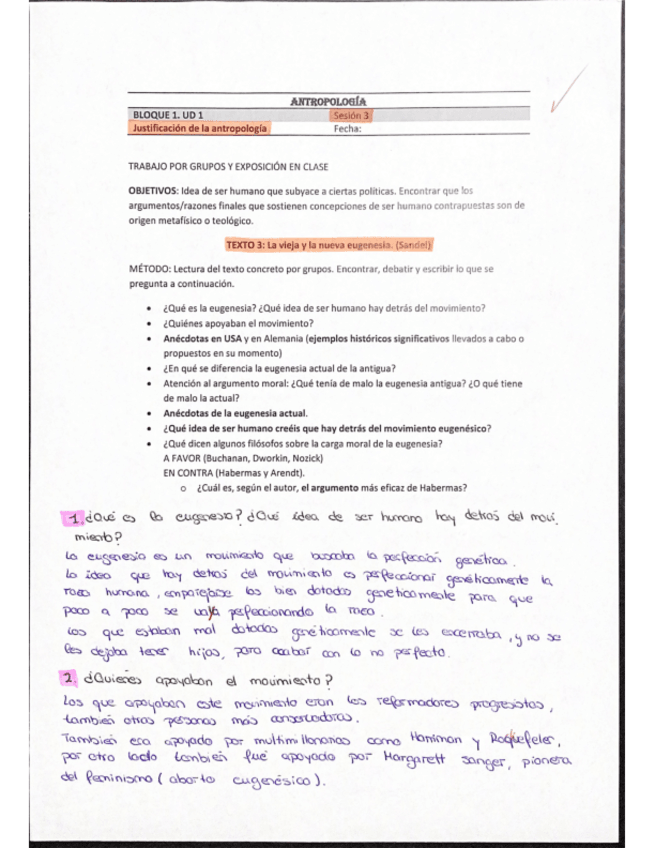 ANTROPOLOGÍA
BLOQUE 1. UD 1 Sesión 3
Justificación de la antropología Fecha:
TRABAJO POR GRUPOS Y EXPOSICIÓN EN CLASE
OBJETIVOS: Idea de ser humano que subyace a ciertas políticas. Encontrar que los
argumentos/razones finales que sostienen concepciones de ser humano contrapuestas son de
origen metafísico o teológico.
TEXTO 3: La vieja y la nueva eugenesia. (Sandel)
MÉTODO: Lectura del texto concreto por grupos. Encontrar, debatir y escribir lo que se
pregunta a continuación.
• ¿Qué es la eugenesia? ¿Qué idea de ser humano hay detrás del movimiento?
• ¿Quiénes apoyaban el movimiento?
• Anécdotas en USA y en Alemania (ejemplos históricos significativos llevados a cabo o
propuestos en su momento)
• ¿En qué se diferencia la eugenesia actual de la antigua?
• Atención al argumento moral: ¿Qué tenía de malo la eugenesia antigua? ¿O qué tiene
de malo la actual?
• Anécdotas de la eugenesia actual.
• ¿Qué idea de ser humano creéis que hay detrás del movimiento eugenésico?
• ¿Qué dicen algunos filósofos sobre la carga moral de la eugenesia?
A FAVOR (Buchanan, Dworkin, Nozick)
EN CONTRA (Habermas y Arendt).
o ¿Cuál es, según el autor, el argumento más eficaz de Habermas?
1. ¿Qué es la eugenesia? ¿Qué idea de ser humano hay detrás del movi
miento?
La eugenesia es un movimiento que buscaba la perfección genética.
La idea que hay detrás del movimiento es perfeccionar genéticamente la
raza humana, emparejarse los bien dotados genéticamente para que
poco a poco se vaya perfeccionando la raza.
Los que estaban mal dotados genéticamente se les encerraba, y no se
les dejaba tener hijos, para acabar con lo no perfecto.
2. ¿Quienes apoyaban el movimiento?
Los que apoyaban este movimiento eran los reformadores progresistas,
también otras personas más conservadoras.
También era apoyado por multimillonarios como Harriman y Roquefeler,
por otro lado también fué apoyado por Margarett Sanger, pionera
del feminismo (aborto eugenésico).